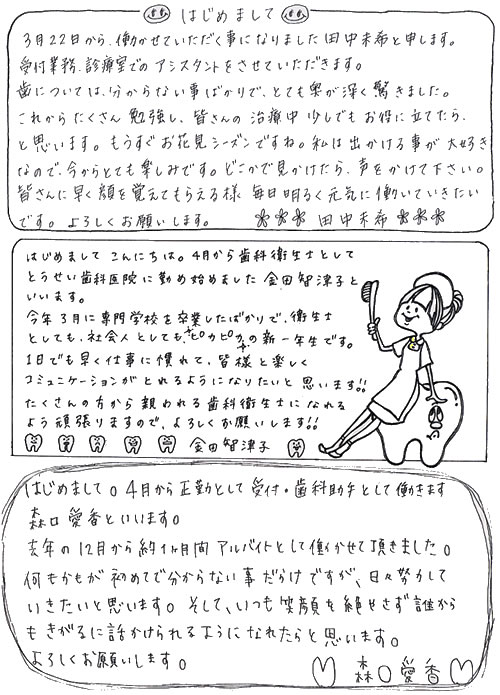 はじめまして
3月22日から、働かせていただく事になりました田中未希と申します。
受付業務、診療室でのアシスタントをさせていただきます。
歯については、分からない事ばかりで、とても奥が深く驚きました。
これからたくさん勉強し、皆さんの治療中少しでもお役に立てたら、
と思います。もうすぐお花見シーズンですね。私は出かける事が大好き
なので、今からとても楽しみです。どこかで見かけたら、声をかけて下さい。
皆さんに早く顔を覚えてもらえる様毎日明るく元気に働いていきたい
です。よろしくお願いします。 田中未希
はじめましてこんにちは。4月から歯科衛生士として
とうせい歯科医院に勤め始めました金田智津子と
いいます。
今年3月に専門学校を卒業したばかりで、衛生士
としても、社会人としてもピカピカの新一年生です。
1日でも早く仕事に慣れて、皆様と楽しく
コミュニケーションがとれるようになりたいと思います!!
たくさんの方から親われる歯科衛生士になれる
よう頑張りますので、よろしくお願いします!!
金田智津子
はじめまして。4月から正勤として受付・歯科助手として働きます
森口愛香といいます。
去年の12月から約1ヶ月間アルバイトとして働かせて頂きました。
何もかもが初めてで分からない事だらけですが、日々努力して
いきたいと思います。そして、いつも笑顔を絶やさず誰から
もきがるに話かけられるようになれたらと思います。
よろしくお願いします。
森口愛香